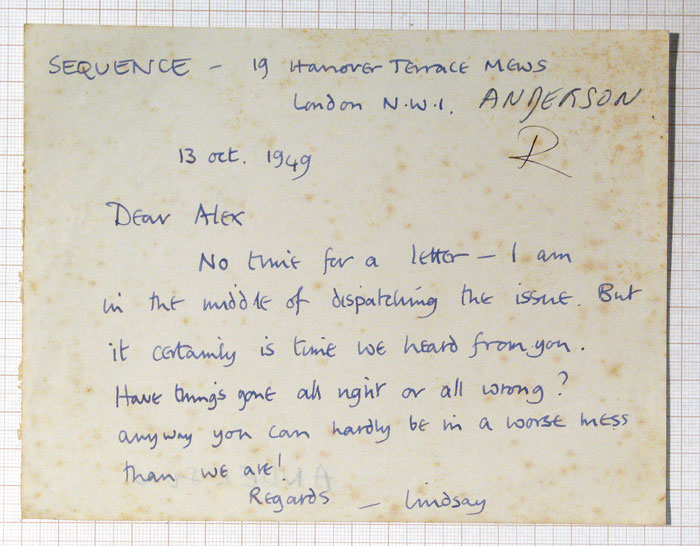 SEQUENCE – 19 Hanover Terrace Mews
London N.W.1. ANDERSON
R
13 Oct. 1949
Dear Alex
No time for a letter – I am
in the middle of dispatching the issue. But
it certainly is time we heard from you.
Have things gone all right or all wrong?
anyway you can hardly be in a worse mess
than we are!
Regards – Lindsay